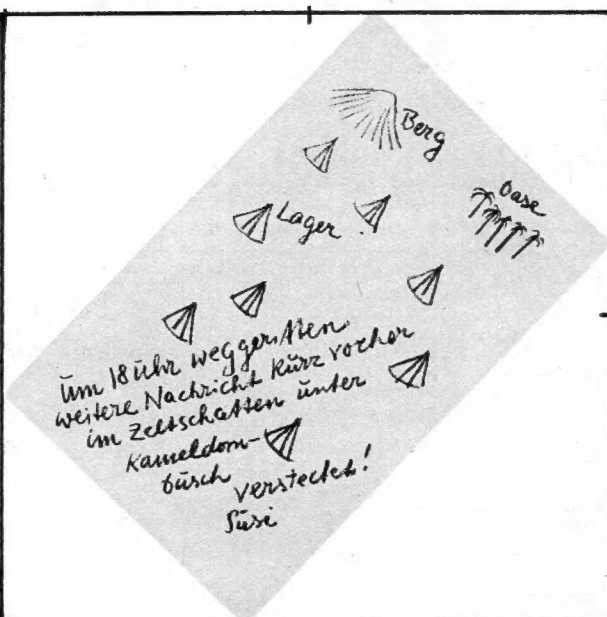 Berg
Oase
Lager
Um 18 Uhr weggeritten
weitere Nachricht kurz vorher
im Zeltschatten unter
Kameldorn-
busch
versteckt!
Susi